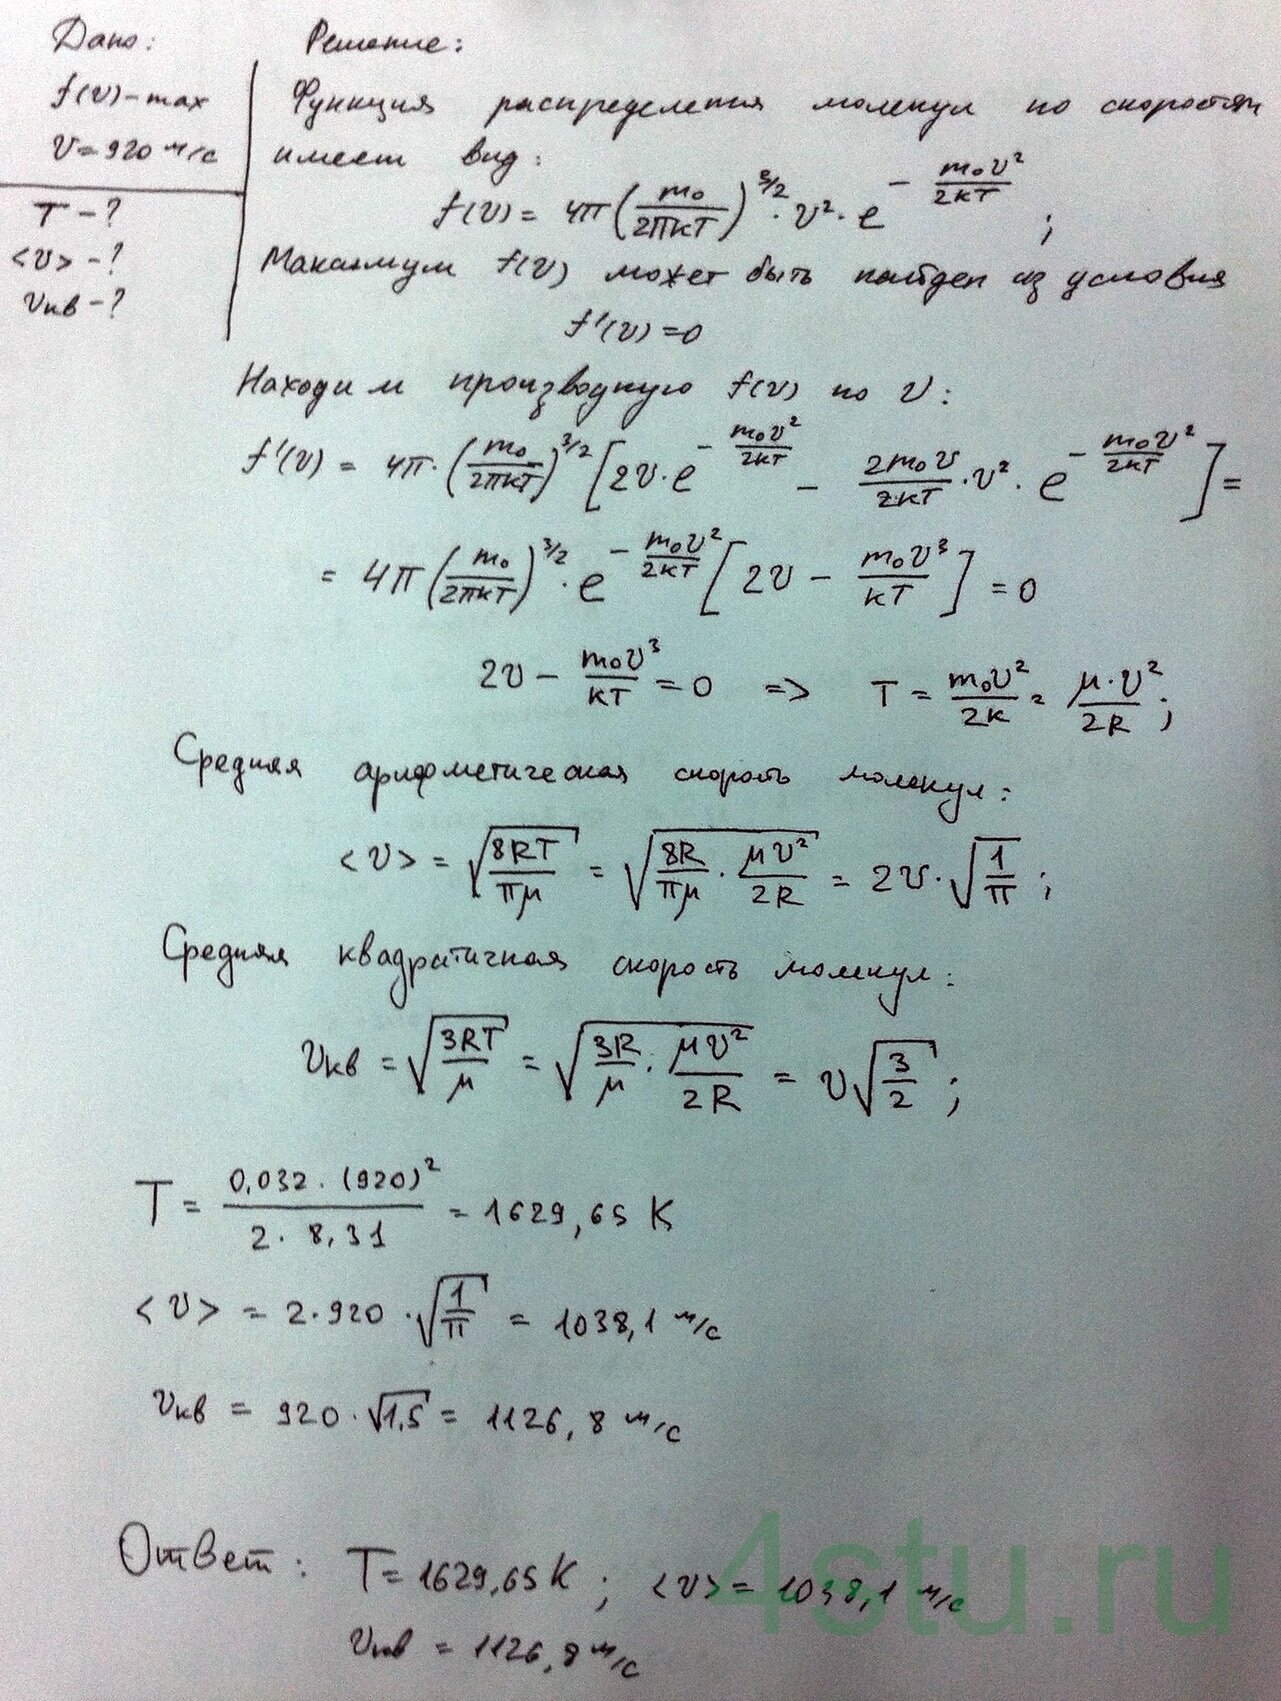 Дано:
f(v) – max
v = 920 м/с
T – ?
<v> – ?
vкв – ?
Решение:
Функция распределения молекул по скоростям
имеет вид:
f(v) = 4π(m₀/2πkT)^3/2 · v² · e^(–m₀v²/2kT) ;
Максимум f(v) может быть найден из условия
f'(v) = 0
Находим производную f(v) по v:
f'(v) = 4π·(m₀/2πkT)^3/2 [2v·e^(–m₀v²/2kT) – 2m₀v/2kT · v² · e^(–m₀v²/2kT)] =
= 4π(m₀/2πkT)^3/2 · e^(–m₀v²/2kT) [2v – m₀v³/kT] = 0
2v – m₀v³/kT = 0 => T = m₀v²/2k = μ·v²/2R ;
Средняя арифметическая скорость молекул:
<v> = √(8RT/πμ) = √(8R/πμ · μv²/2R) = 2v·√(1/π) ;
Средняя квадратичная скорость молекул:
vкв = √(3RT/μ) = √(3R/μ · μv²/2R) = v√(3/2) ;
T = 0,032·(920)²/2·8,31 = 1629,65 K
<v> = 2·920·√(1/π) = 1038,1 м/с
vкв = 920·√1,5 = 1126,8 м/с
Ответ: T = 1629,65 K ; <v> = 1038,1 м/с
vкв = 1126,8 м/с
4stu.ru